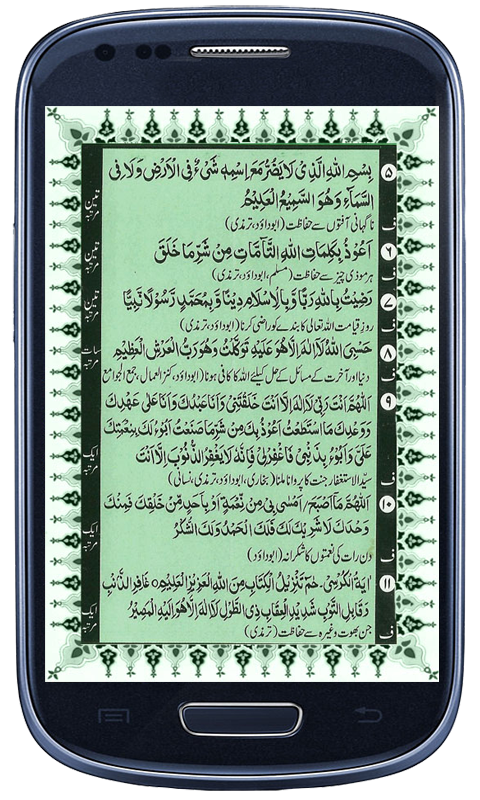 ۵ بِسْمِ اللهِ الَّذِىْ لَا يَضُرُّ مَعَ اِسْمِهٖ شَىْءٌ فِى الْاَرْضِ وَلَا فِى
السَّمَآءِ وَهُوَ السَّمِيْعُ الْعَلِيْمُ
تین مرتبہ
ف ناگہانی آفتوں سے حفاظت (ابوداؤد، ترمذی)
۶ اَعُوْذُ بِكَلِمَاتِ اللهِ التَّآمَّاتِ مِنْ شَرِّ مَا خَلَقَ
تین مرتبہ
ف ہر موذی چیز سے حفاظت (مسلم، ابوداؤد، ترمذی)
۷ رَضِيْتُ بِاللهِ رَبًّا وَّبِالْاِسْلَامِ دِيْنًا وَّبِمُحَمَّدٍ رَسُوْلًا نَّبِيًّا
تین مرتبہ
ف روز قیامت اللہ تعالی کا بندے کو راضی کرنا (ابوداؤد، ترمذی)
۸ حَسْبِىَ اللهُ لَا اِلٰهَ اِلَّا هُوَ عَلَيْهِ تَوَكَّلْتُ وَهُوَ رَبُّ الْعَرْشِ الْعَظِيْمِ
سات مرتبہ
ف دنیا اور آخرت کے مسائل کے حل کیلئے اللہ کا کافی ہونا (ابوداؤد، کنز العمال، جمع الجوامع
۹ اَللّٰهُمَّ اَنْتَ رَبِّىْ لَا اِلٰهَ اِلَّا اَنْتَ خَلَقْتَنِىْ وَاَنَا عَبْدُكَ وَاَنَا عَلٰى عَهْدِكَ
وَوَعْدِكَ مَا اسْتَطَعْتُ اَعُوْذُ بِكَ مِنْ شَرِّ مَا صَنَعْتُ اَبُوْءُ لَكَ بِنِعْمَتِكَ
عَلَىَّ وَاَبُوْءُ بِذَنْۢبِىْ فَاغْفِرْلِىْ فَاِنَّهٗ لَا يَغْفِرُ الذُّنُوْبَ اِلَّا اَنْتَ
ایک مرتبہ
ف سیدالاستغفار، جنت کا پروانہ ملنا (بخاری، ابوداؤد، ترمذی، نسائی)
۱۰ اَللّٰهُمَّ مَآ اَصْبَحَ/اَمْسٰى بِىْ مِنْ نِّعْمَةٍ اَوْ بِاَحَدٍ مِّنْ خَلْقِكَ فَمِنْكَ
وَحْدَكَ لَا شَرِيْكَ لَكَ فَلَكَ الْحَمْدُ وَلَكَ الشُّكْرُ
ایک مرتبہ
ف دن رات کی نعمتوں کا شکرانہ (ابوداؤد)
۱۱ اٰيَةُ الْكُرْسِىْ، حٰمٓ تَنْزِيْلُ الْكِتَابِ مِنَ اللهِ الْعَزِيْزِ الْعَلِيْمِ ○ غَافِرِ الذَّنْۢبِ
وَقَابِلِ التَّوْبِ شَدِيْدِ الْعِقَابِ ذِى الطَّوْلِ لَا اِلٰهَ اِلَّا هُوَ اِلَيْهِ الْمَصِيْرُ
ایک مرتبہ
ف جن بھوت وغیرہ سے حفاظت (ترمذی)